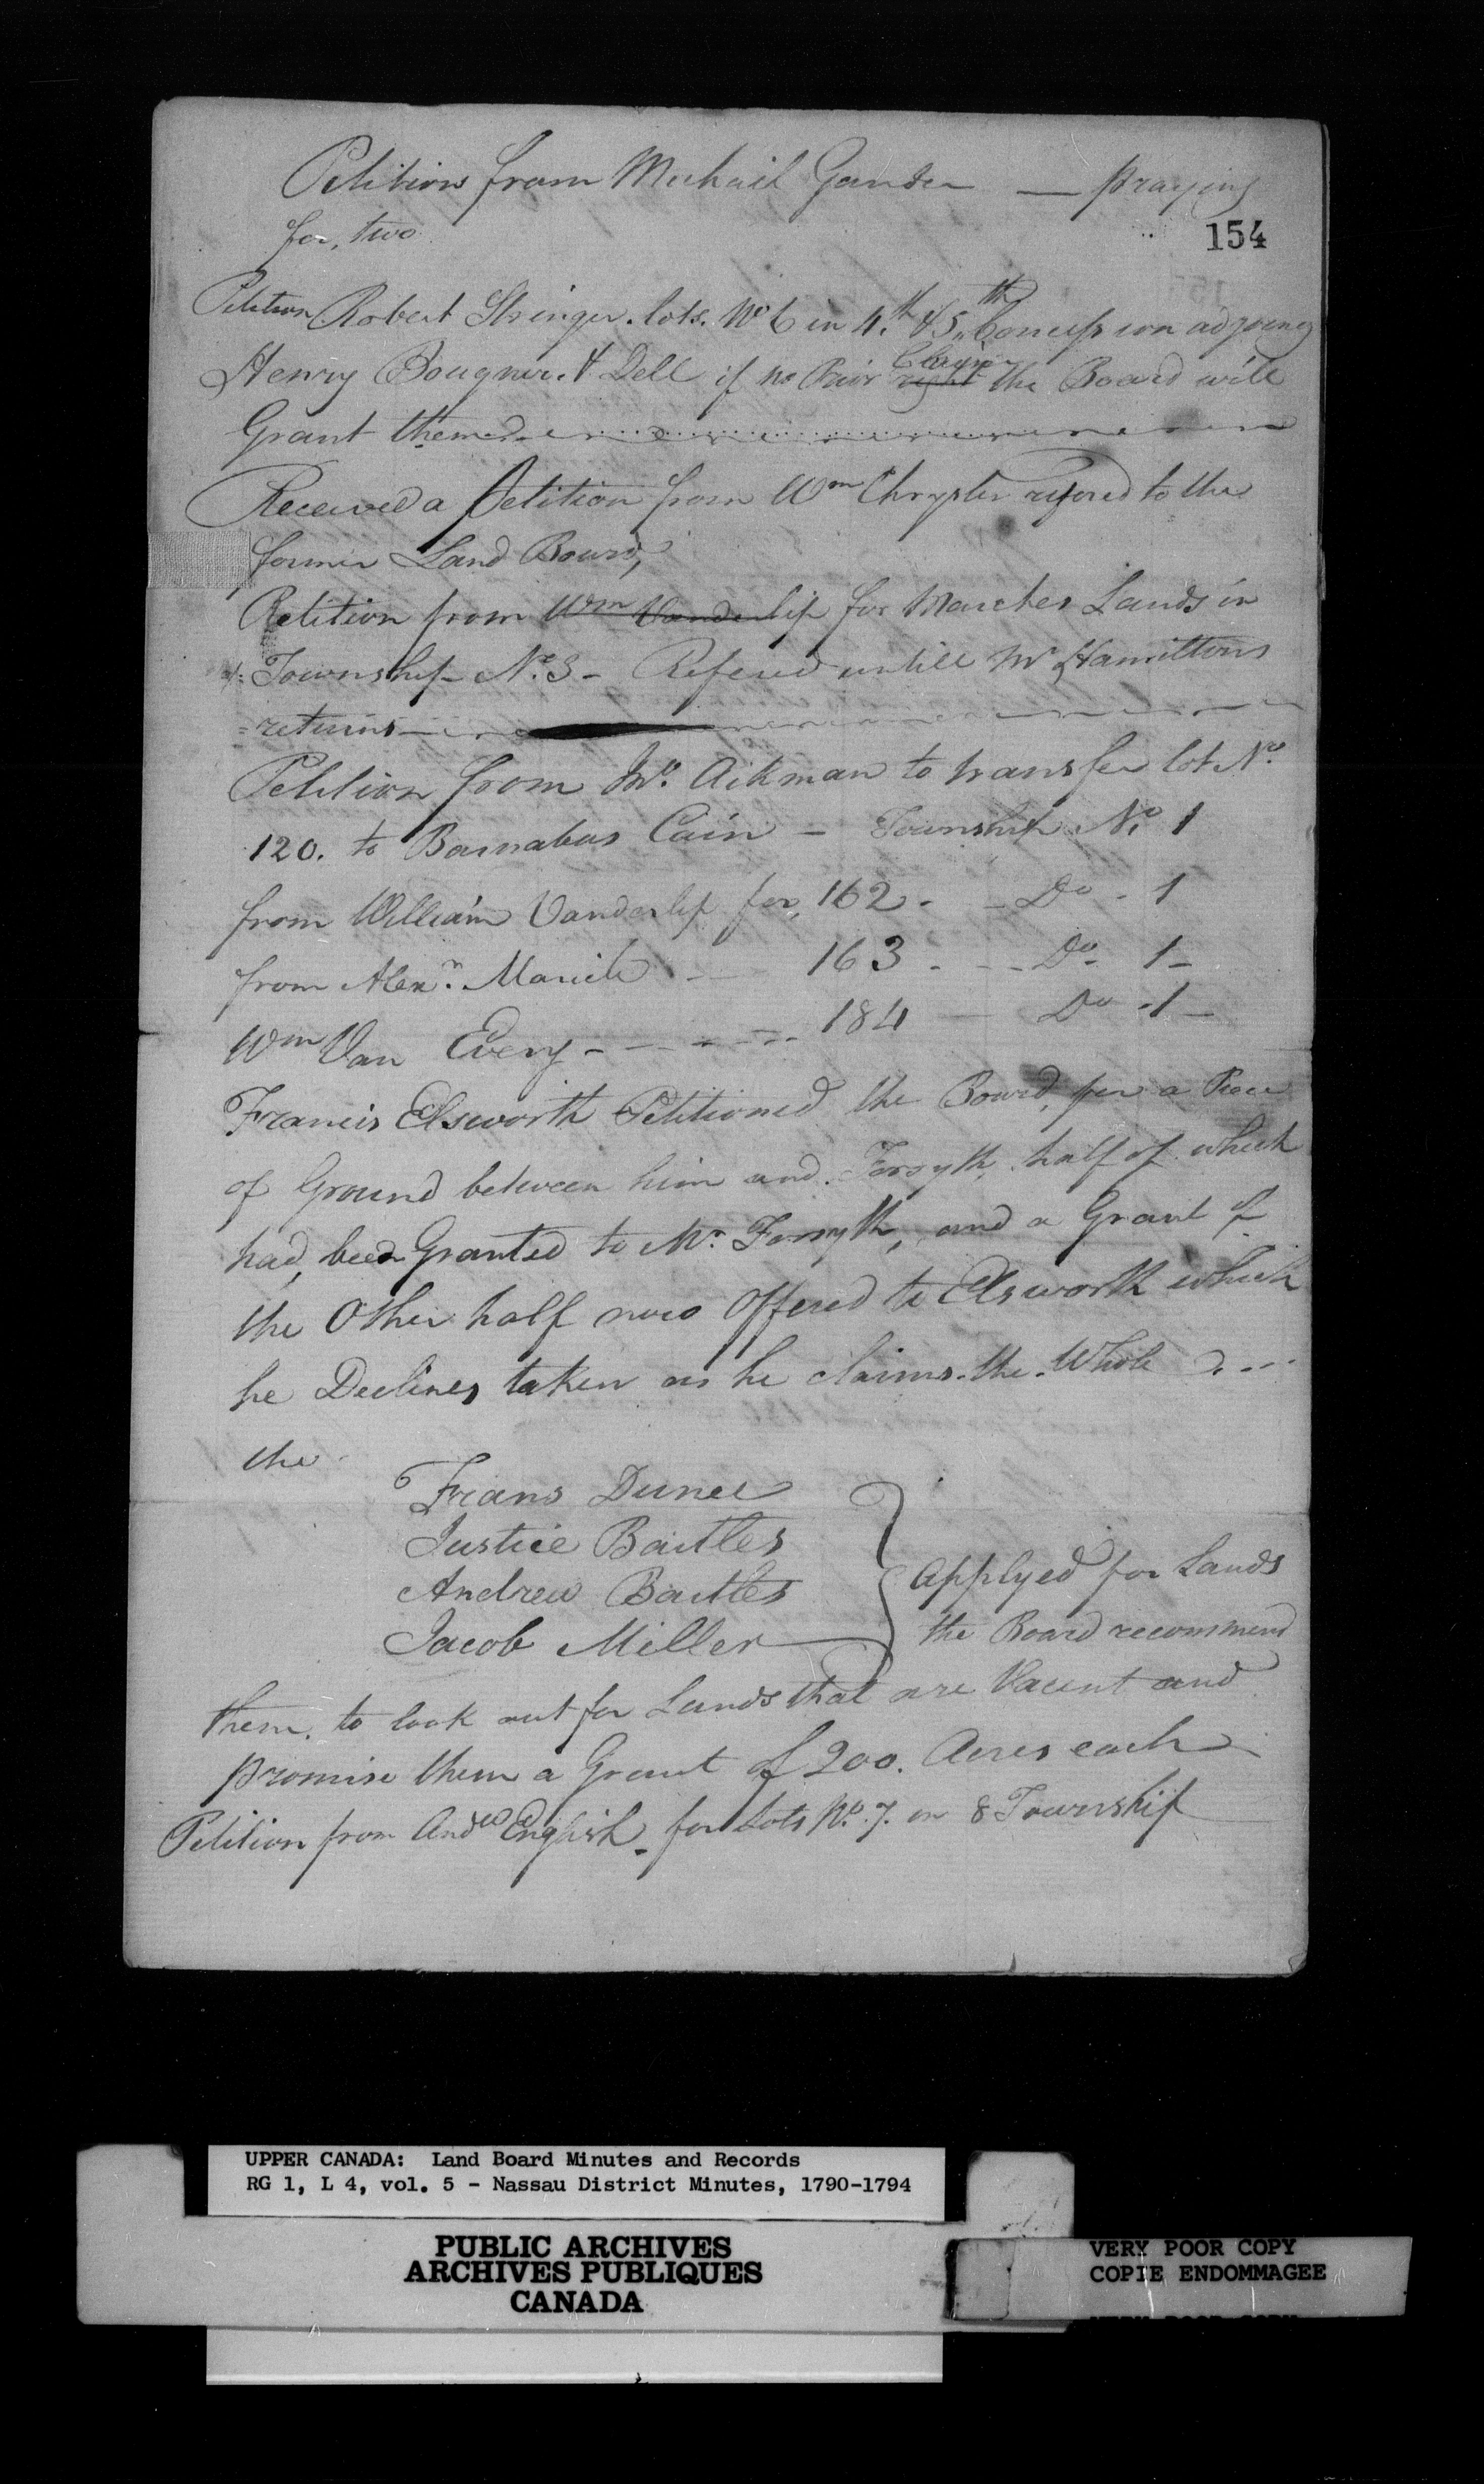 Petition from Michail Gander — praying
for, two
154
Petition Robert Stringer. lots. No 6 in 4.th & 5.th Concession adjoing
Henry Bougner. & Dell if no Prior Claim right the Board will
Grant them
Received a Petition from Wm Chrysler refered to the
former Land Board,
Petition from Wm Vanderlip for Lands in
Township No. 3 - Refered untill Mr Hamiltons
returns
Petition from Jno. Aikman to transfer lot No.
120. to Barnabas Cain - Township No. 1
from William Vanderlip for, 162 - - Do - 1
from Alexr. 163 - - Do - 1 -
Wm Van Every - - - - - 184 - Do - 1 -
Francis Elsworth Petitioned the Board, for a Piece
of Ground between him and Forsyth, half of which
had, been Granted to Mr. Forsyth, and a Grant of
the Other half now Offered to Elsworth which
he Declines taken as he claims the Whole
the
Frans
Justice Baitles
Andrew Baitles
Jacob Miller
Applyed for Lands
the Board recommend
them. to look out for Lands that are Vacent and
promise them a Grant of 200. Acres each
Petition from Andw English - for Lots No. 7. in 8 Township
UPPER CANADA: Land Board Minutes and Records
RG 1, L 4, vol. 5 - Nassau District Minutes, 1790-1794
PUBLIC ARCHIVES
ARCHIVES PUBLIQUES
CANADA
VERY POOR COPY
COPIE ENDOMMAGEE
VERY POOR COPY